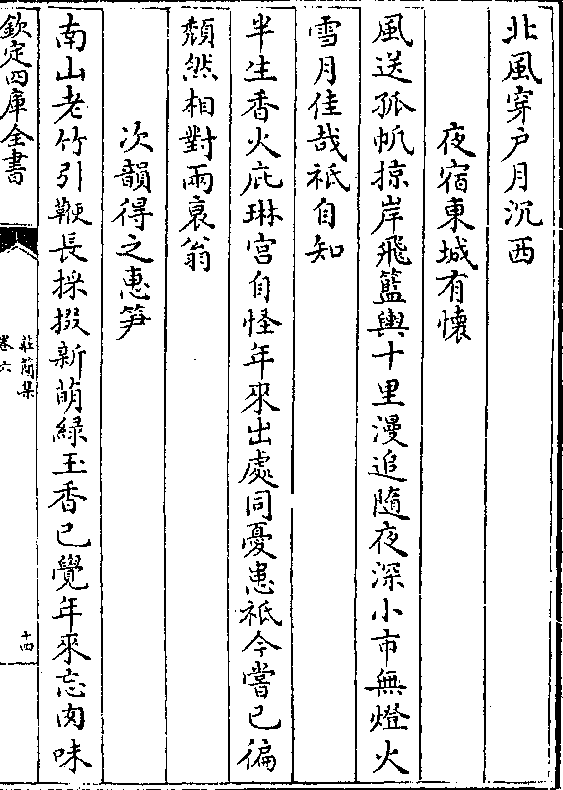 北風穿户月沉西
夜宿東城有懷
風送孤帆掠岸飛籃輿十里漫追隨夜深小市無燈火
雪月佳哉祗自知
半生香火庇琳宫自怪年來出處同憂患祗今嘗已徧
頽然相對兩衰翁
次韻得之惠笋
南山老竹引鞭長採掇新萌緑玉香已覺年來忘肉味
欽定四庫全書
莊簡集
卷六
十四